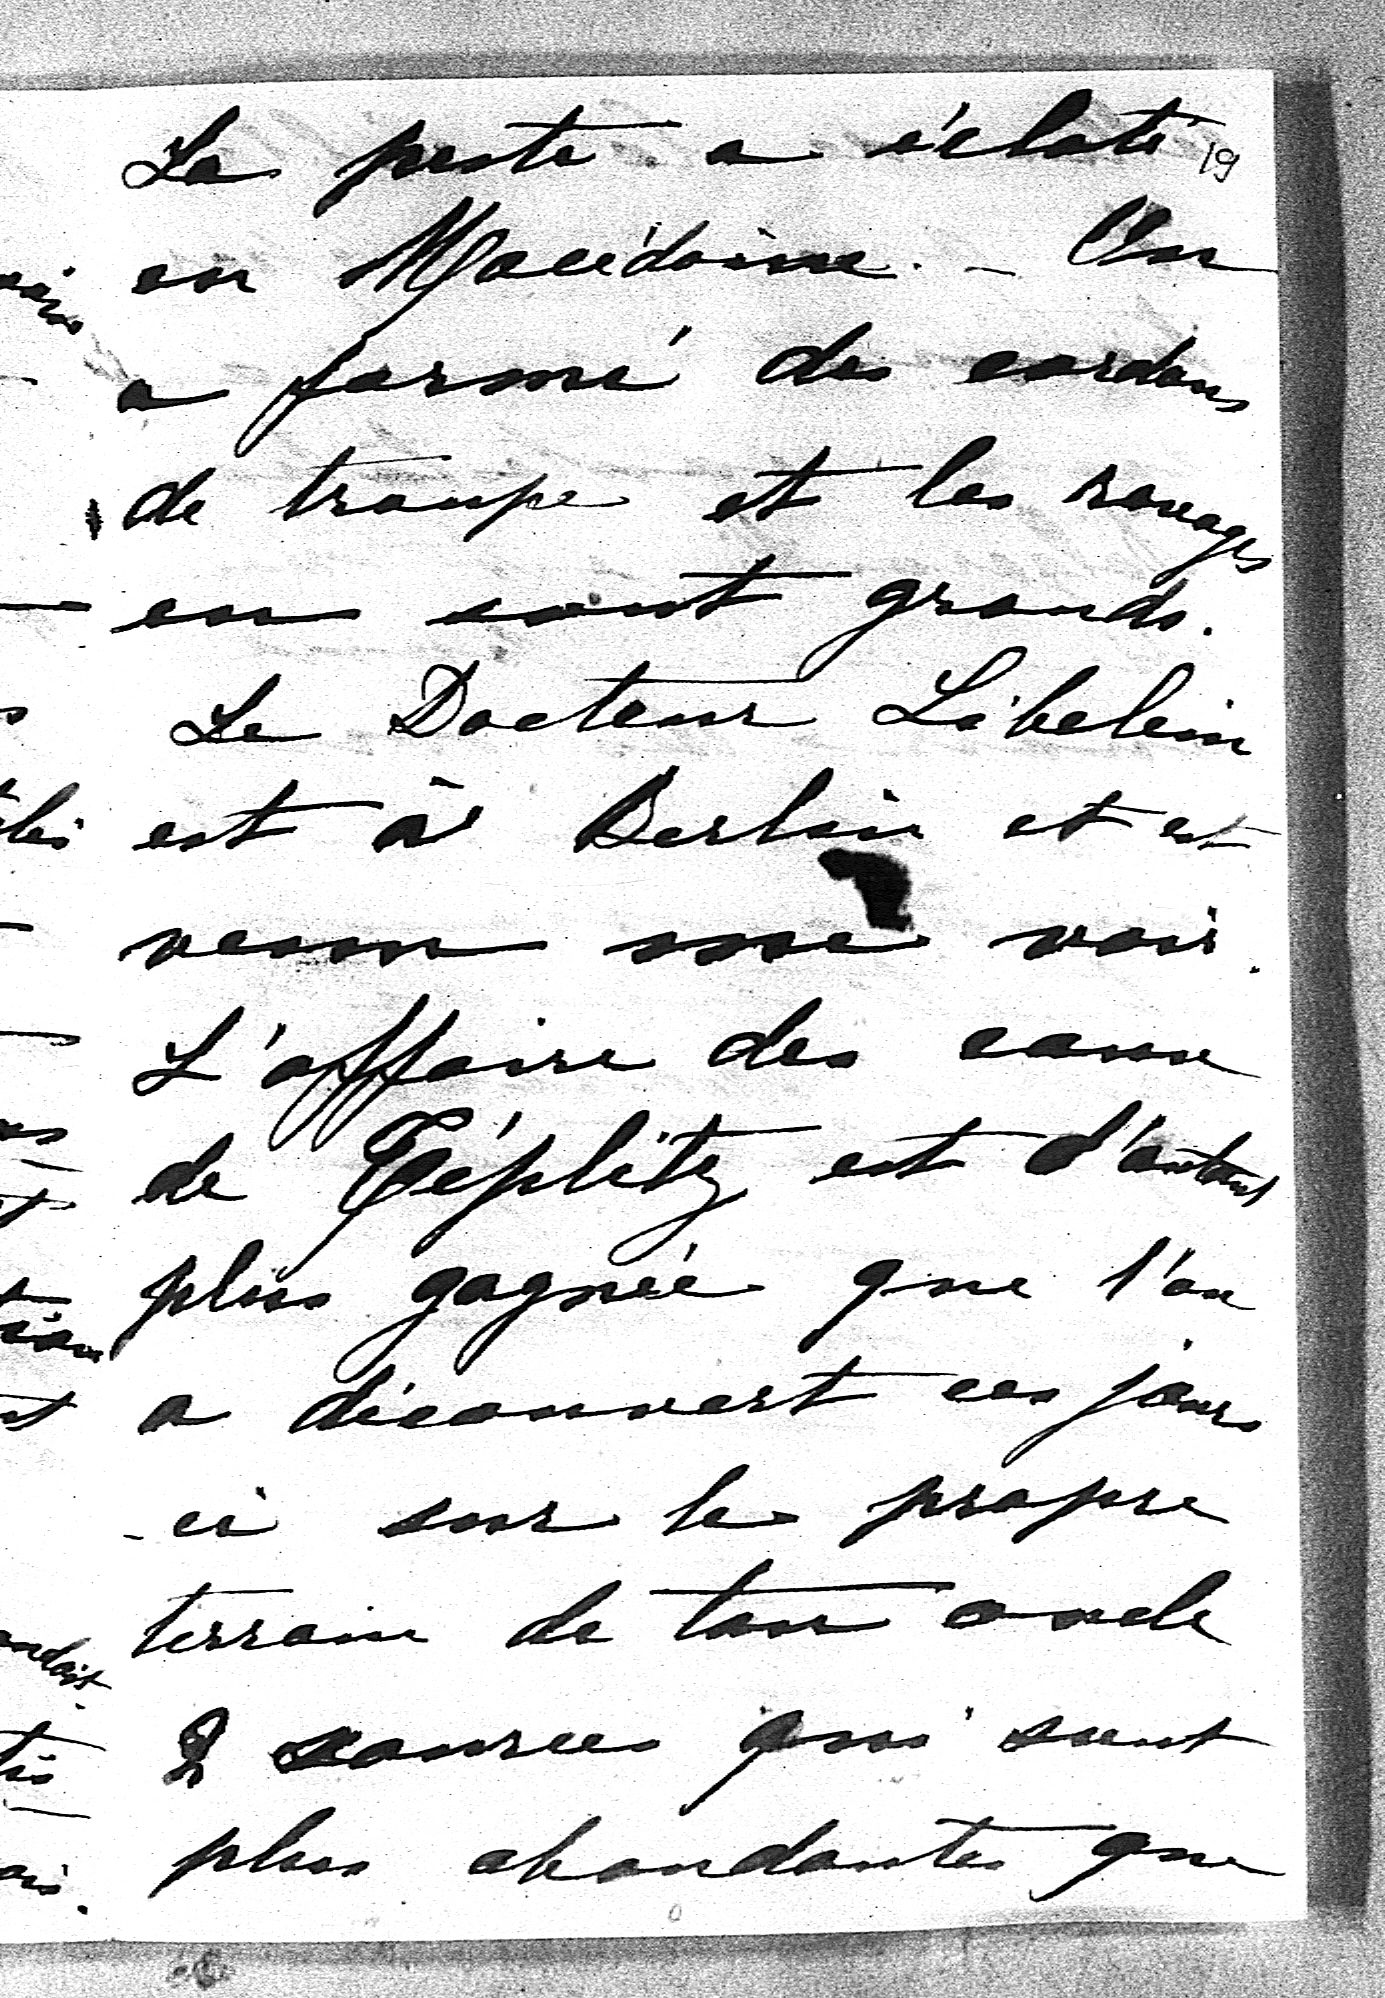 La peste a éclaté 19
en Macédoine. - On
a formé des cordons
de troupe et les ravages
en sont grands.
Le Docteur Libelein
est à Berlin et est
venu me voir.
L'affaire des eaux
de Téplitz est d'autant
plus gagnée que l'on
a découvert ces jours
-ci sur le propre
terrain de ton oncle
2 sources qui sont
plus abondantes que